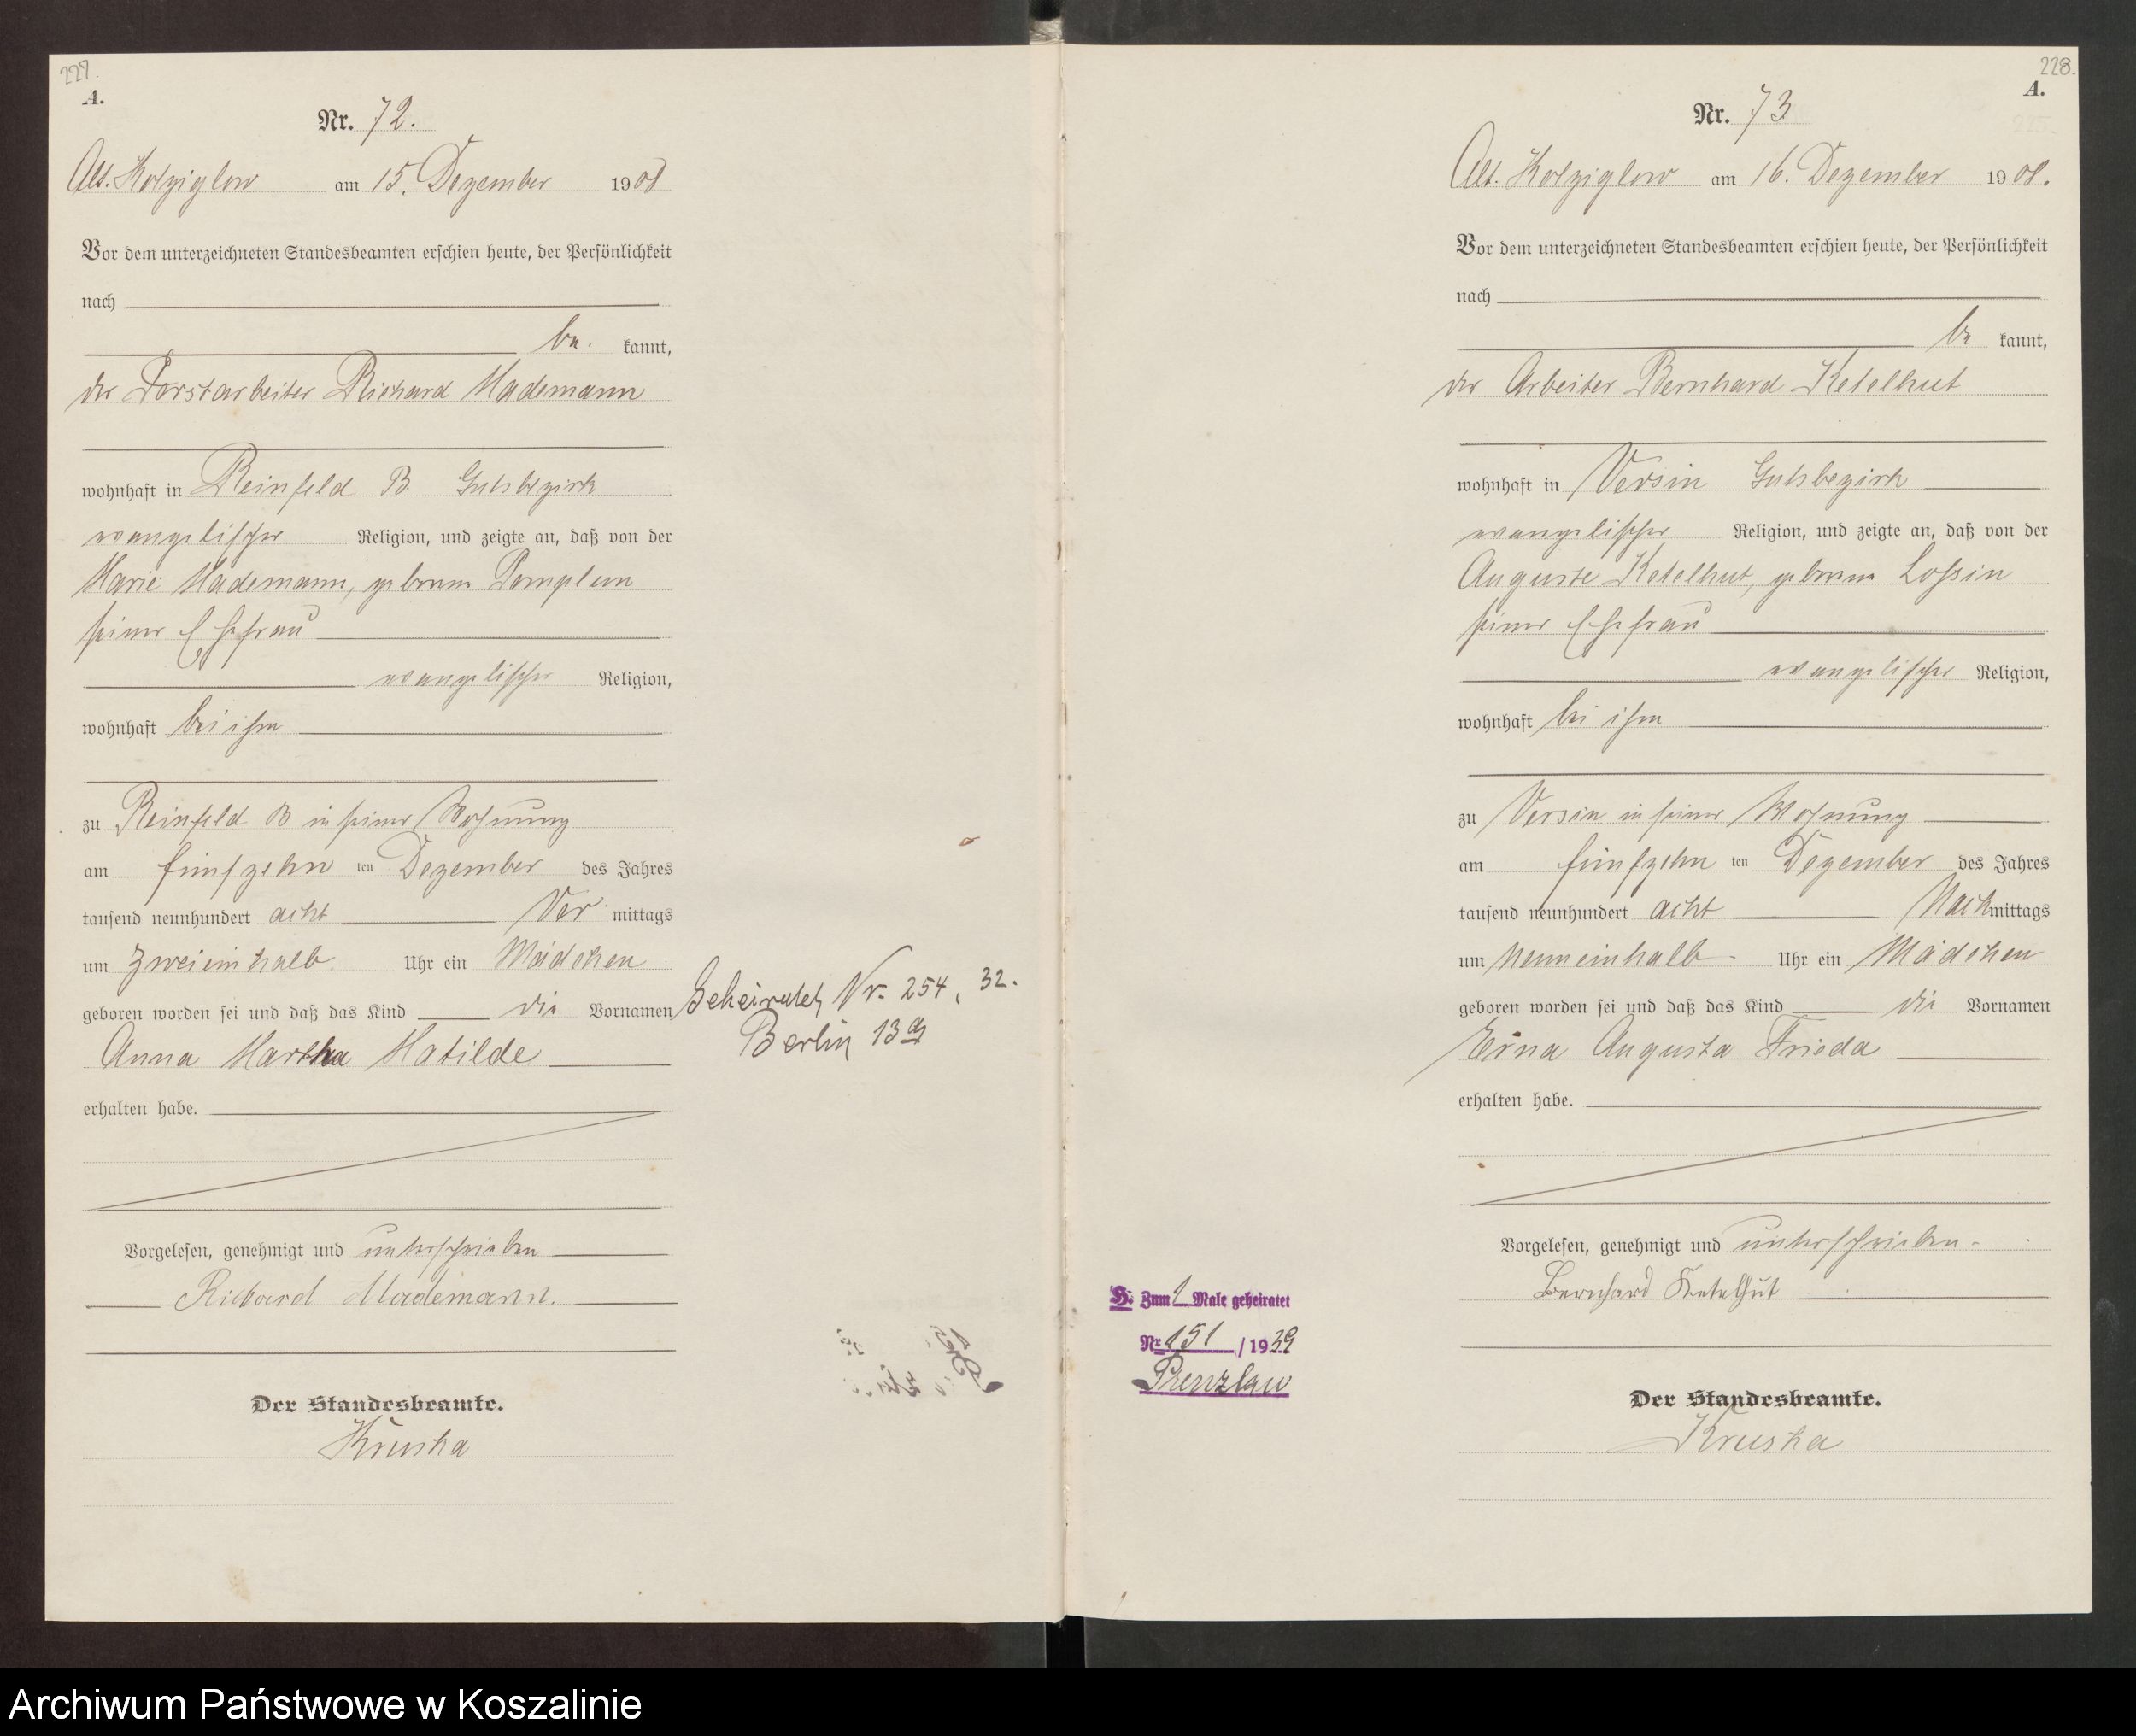 227.
A.
Nr. 72.
Alt. Kolziglow am 15. Dezember 1908
Vor dem unterzeichneten Standesbeamten erschien heute, der Persönlichkeit
nach
be. kannt,
der Forstarbeiter Richard Mademann
wohnhaft in Reinfeld B. Gutsbezirk
evangelischer Religion, und zeigte an, daß von der
Marie Mademann, geborene Pomplun
seiner Ehefrau
evangelischer Religion,
wohnhaft bei ihm
zu Reinfeld B in seiner Wohnung
am fünfzehn ten Dezember des Jahres
tausend neunhundert acht Vor mittags
um zweieinhalb Uhr ein Mädchen
geboren worden sei und daß das Kind die Vornamen
Anna Martha Matilde
erhalten habe.
Vorgelesen, genehmigt und unterschrieben
Richard Mademann.
Der Standesbeamte.
Kruska
Geheiratet Nr. 254, 32.
Berlin 13a
228.
A.
Nr. 73
Alt. Kolziglow am 16. Dezember 1908.
Vor dem unterzeichneten Standesbeamten erschien heute, der Persönlichkeit
nach
be kannt,
der Arbeiter Bernhard Ketelhut
wohnhaft in Versin Gutsbezirk
evangelischer Religion, und zeigte an, daß von der
Auguste Ketelhut, geborene Lossin
seiner Ehefrau
evangelischer Religion,
wohnhaft bei ihm
zu Versin in seiner Wohnung
am fünfzehn ten Dezember des Jahres
tausend neunhundert acht Nachmittags
um neuneinhalb Uhr ein Mädchen
geboren worden sei und daß das Kind die Vornamen
Erna Augusta Frieda
erhalten habe.
Vorgelesen, genehmigt und unterschrieben
Bernhard Ketelhut
Der Standesbeamte.
Kruska
H: Zum 1 Male geheiratet
Nr. 151 / 1939
Prenzlau
Archiwum Państwowe w Koszalinie